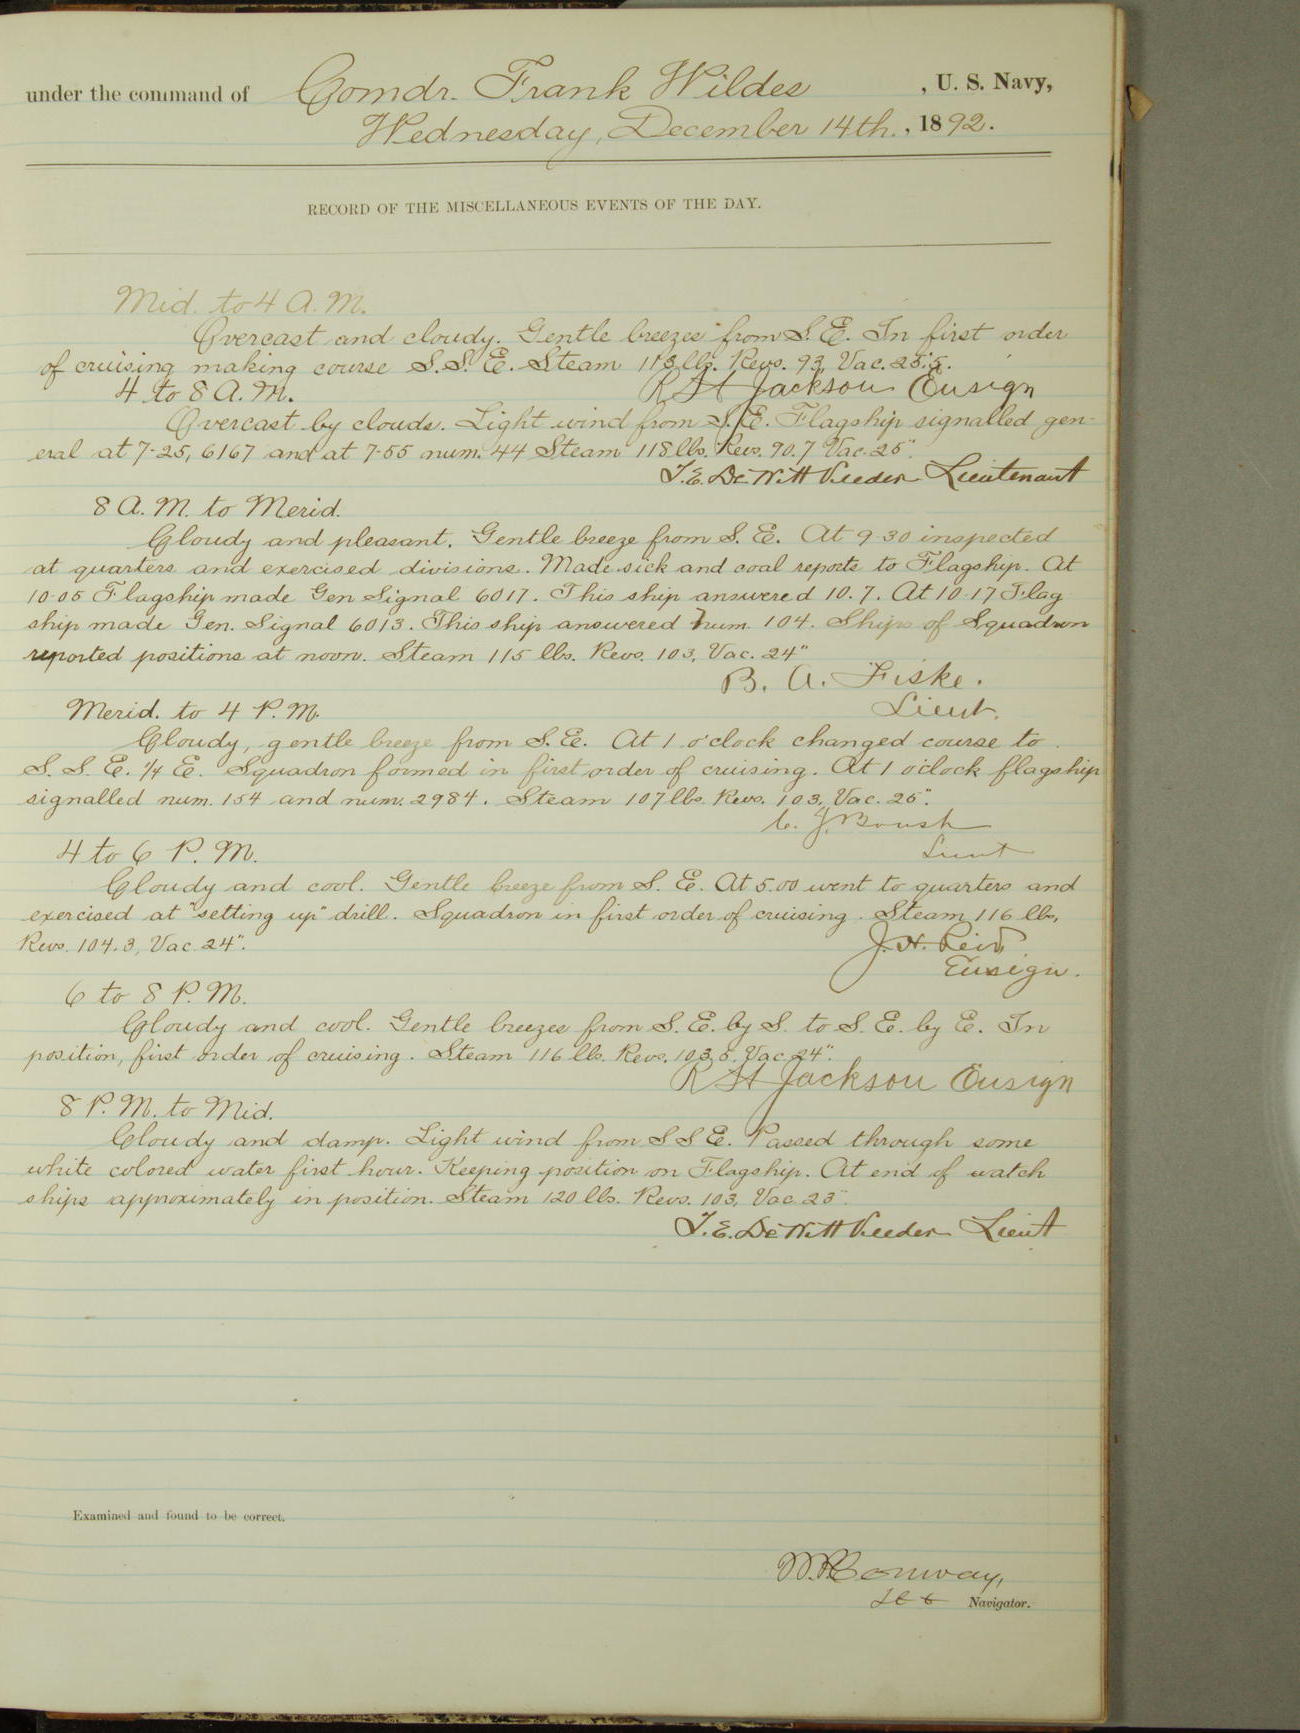 under the command of Comdr. Frank Wildes, U. S. Navy,
Wednesday, December 14th., 1892.
RECORD OF THE MISCELLANEOUS EVENTS OF THE DAY.
Mid. to 4 A.M.
Overcast and cloudy. Gentle breezes from S.E. In first order
of cruising making course S.S.E. Steam 113 lbs. Revs. 93, Vac. 25".5.
R H Jackson Ensign
4 to 8 A.M.
Overcast by clouds. Light wind from S.E. Flagship signalled gen-
eral at 7-25, 6167 and at 7-55 num. 44 Steam 118 lbs. Revs. 90.7 Vac. 25".
T.E. DeWitt Veeder Lieutenant
8 A.M. to Merid.
Cloudy and pleasant. Gentle breeze from S.E. At 9-30 inspected
at quarters and exercised divisions. Made sick and coal reports to Flagship. At
10-05 Flagship made Gen Signal 6017. This ship answered 10.7. At 10-17 Flag
ship made Gen. Signal 6013. This ship answered num. 104. Ships of Squadron
reported positions at noon. Steam 115 lbs. Revs. 103, Vac. 24"
B. A. Fiske.
Lieut.
Merid. to 4 P.M.
Cloudy, gentle breeze from S.E. At 1 o'clock changed course to
S.S.E. 1/4 E. Squadron formed in first order of cruising. At 1 o'clock flagship
signalled num. 154 and num. 2984. Steam 107 lbs. Revs. 103, Vac. 25".
C. J. Boush
Lieut
4 to 6 P.M.
Cloudy and cool. Gentle breeze from S.E. At 5.00 went to quarters and
exercised at "setting up" drill. Squadron in first order of cruising. Steam 116 lbs,
Revs. 104.3, Vac. 24".
J.H. Reid
Ensign.
6 to 8 P.M.
Cloudy and cool. Gentle breezes from S.E. by S. to S.E. by E. In
position, first order of cruising. Steam 116 lbs. Revs. 103.5. Vac 24".
R H Jackson Ensign
8 P.M. to Mid.
Cloudy and damp. Light wind from SSE. Passed through some
white colored water first hour. Keeping position on Flagship. At end of watch
ships approximately in position. Steam 120 lbs. Revs. 103, Vac. 23".
T.E. DeWitt Veeder Lieut
Examined and found to be correct.
Conway,
Navigator.